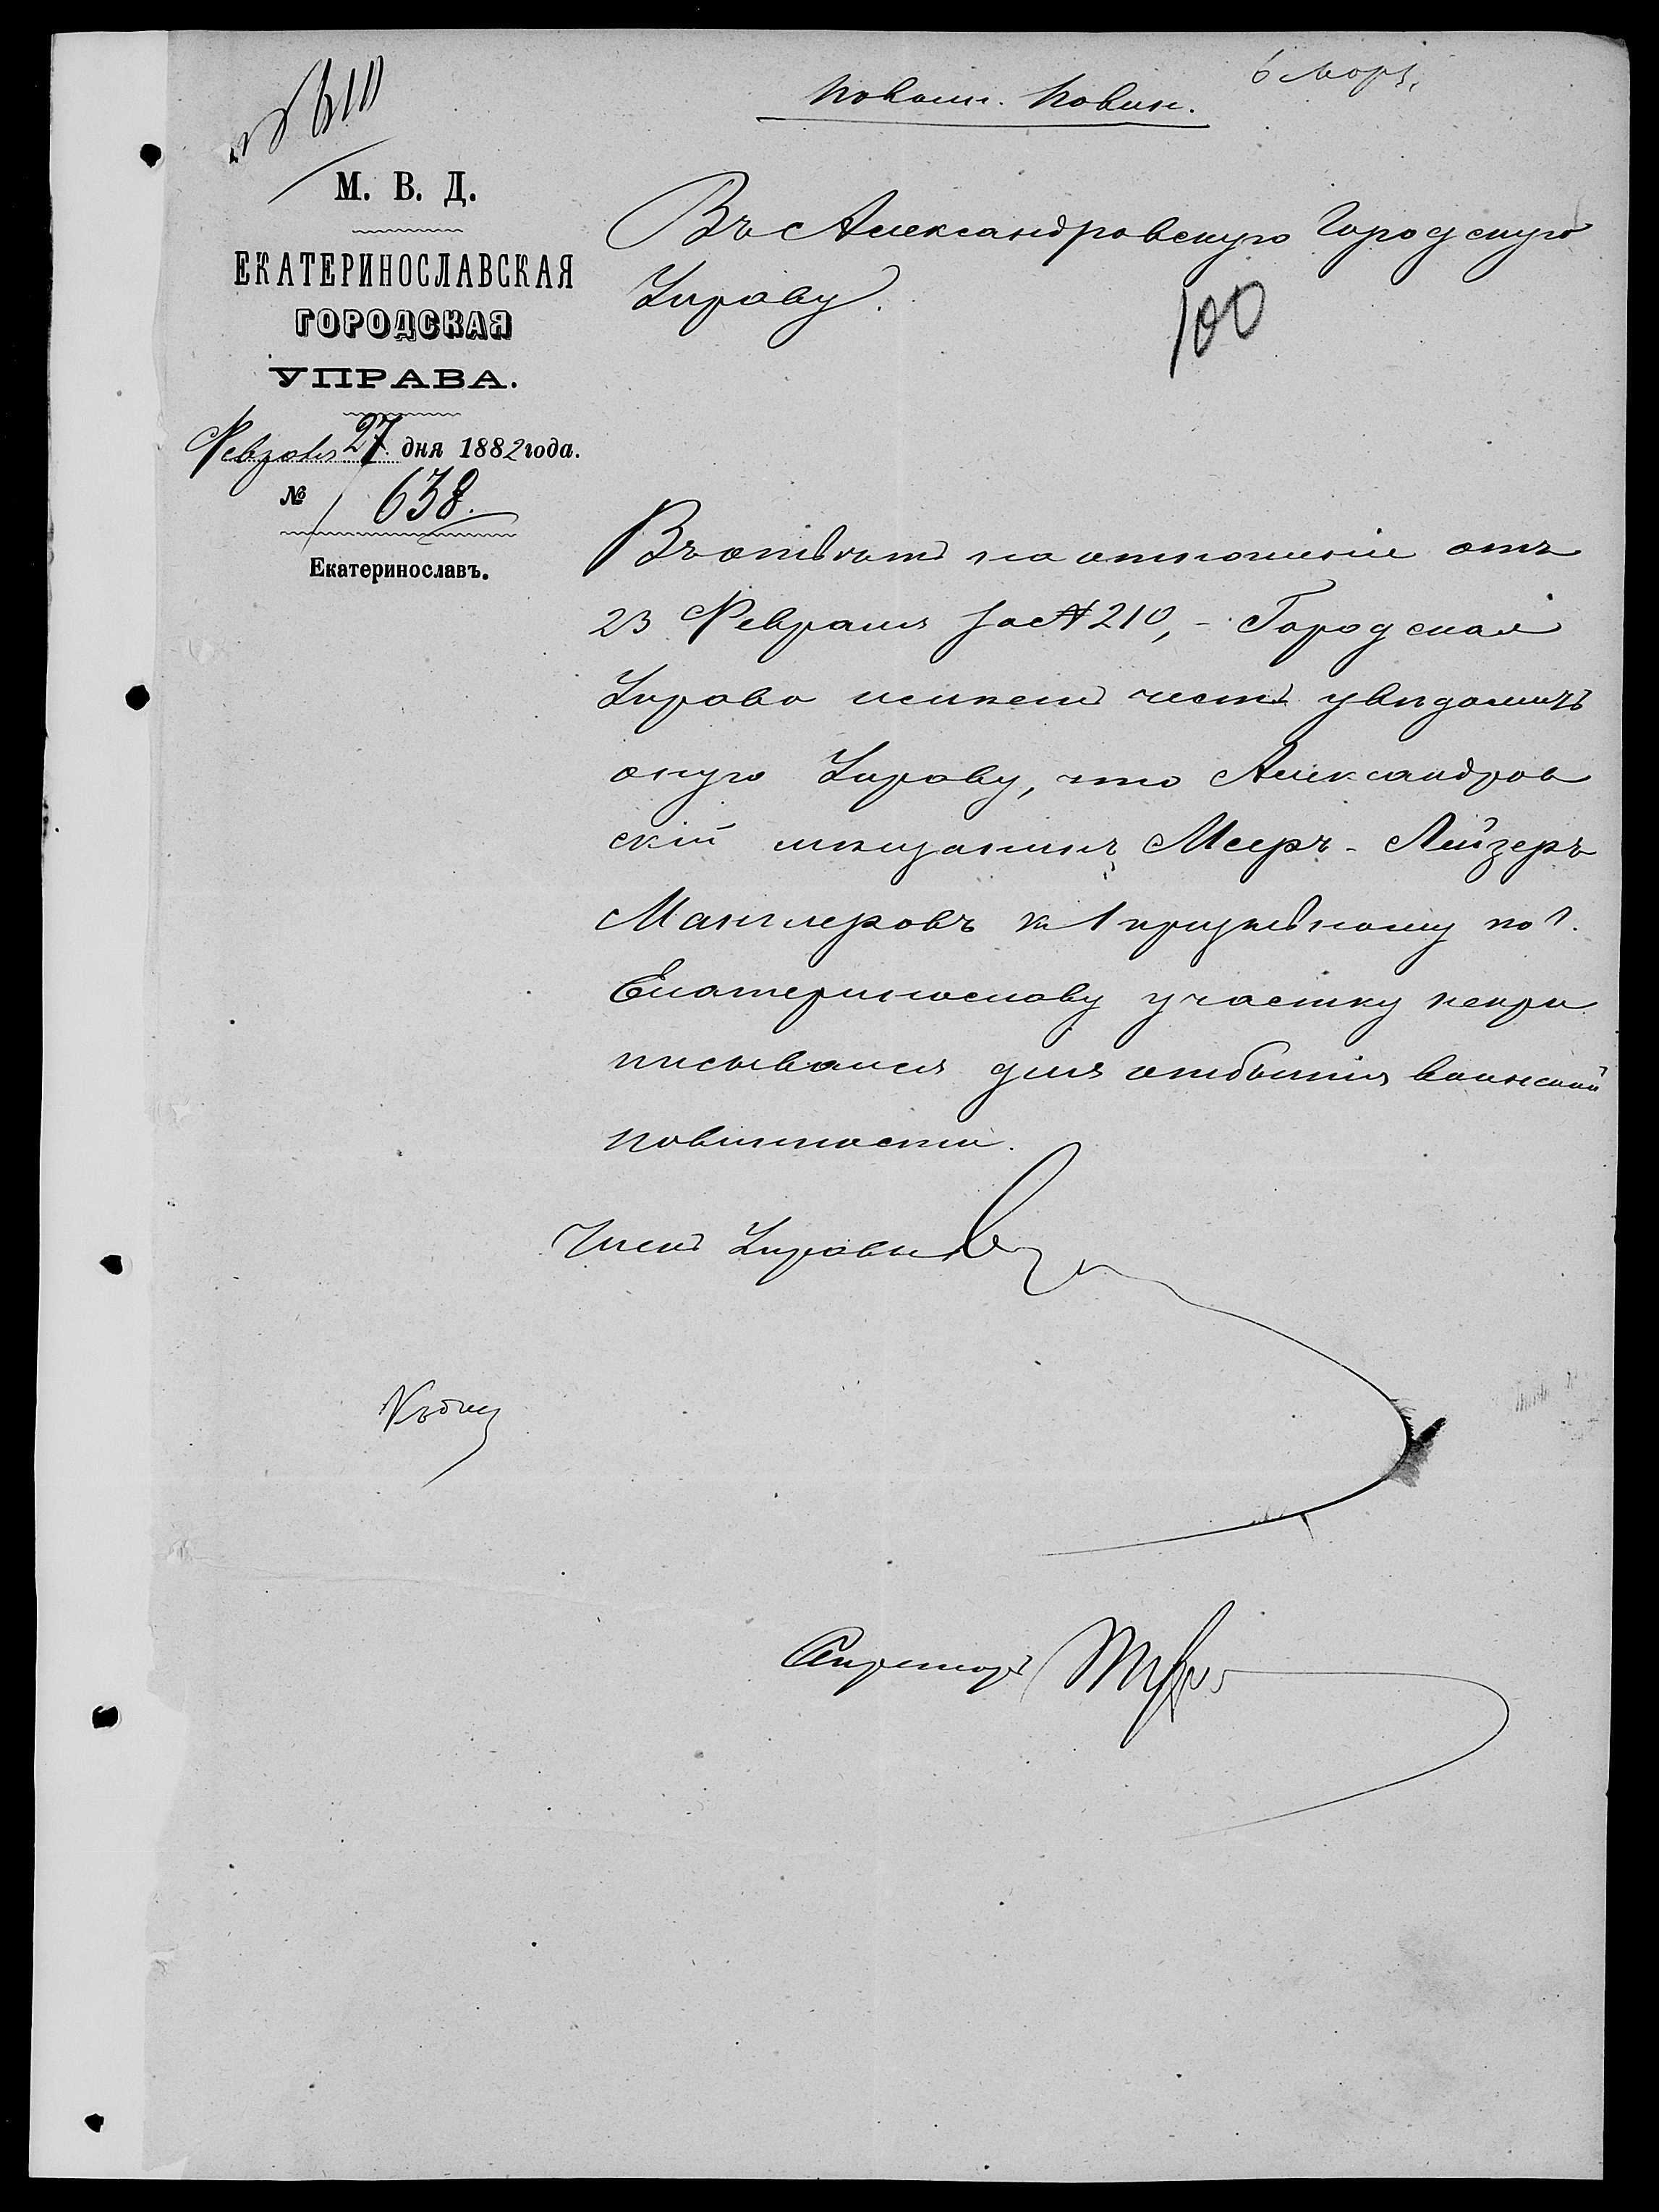 № 610
По воин. повин.
6 Март.
М. В. Д.
ЕКАТЕРИНОСЛАВСКАЯ
ГОРОДСКАЯ
УПРАВА.
Февраля 27 дня 1882 года.
№ 638.
Екатеринославъ.
Въ Александровскую Городскую
Управу.
100
Въ отвѣтъ на отношеніе отъ
23 Февраля за № 210, - Городская
Управа имѣетъ честь увѣдомить
оную Управу, что Александров
скій мѣщанинъ Мееръ-Лейзеръ
Манглеровъ къ 1 призывному по г.
Екатеринославу участку непри
писывался для отбытія воинской
повинности.
Членъ Управы
Къ дѣлу
Секретарь